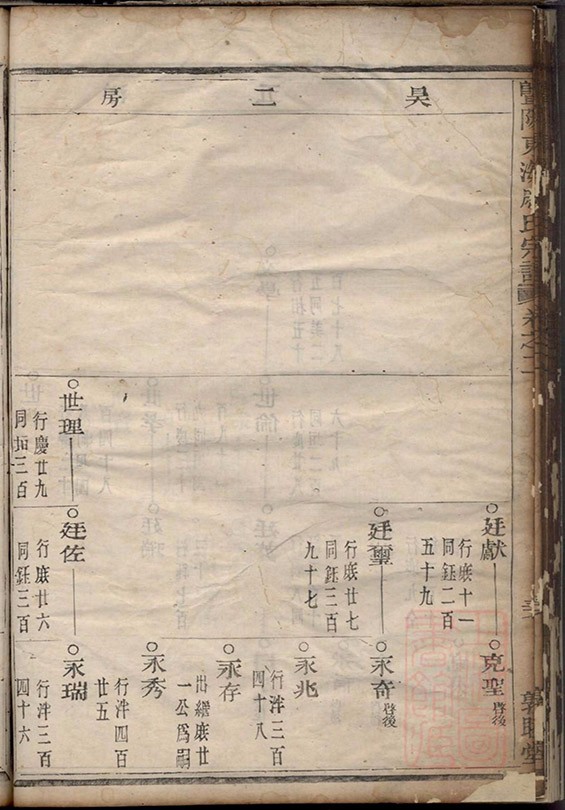 昊二房
廷獻
行㡳十一
同鈺二百
五十九
克聖啓後
廷璽
行㡳廿七
同鈺三百
九十七
永奇啓後
永兆
行泮三百
四十八
永存
出繼㡳廿
一公爲嗣
永秀
行泮四百
廿五
世理
行慶廿九
同垣三百
廷佐
行㡳廿六
同鈺三百
永瑞
行泮三百
四十六